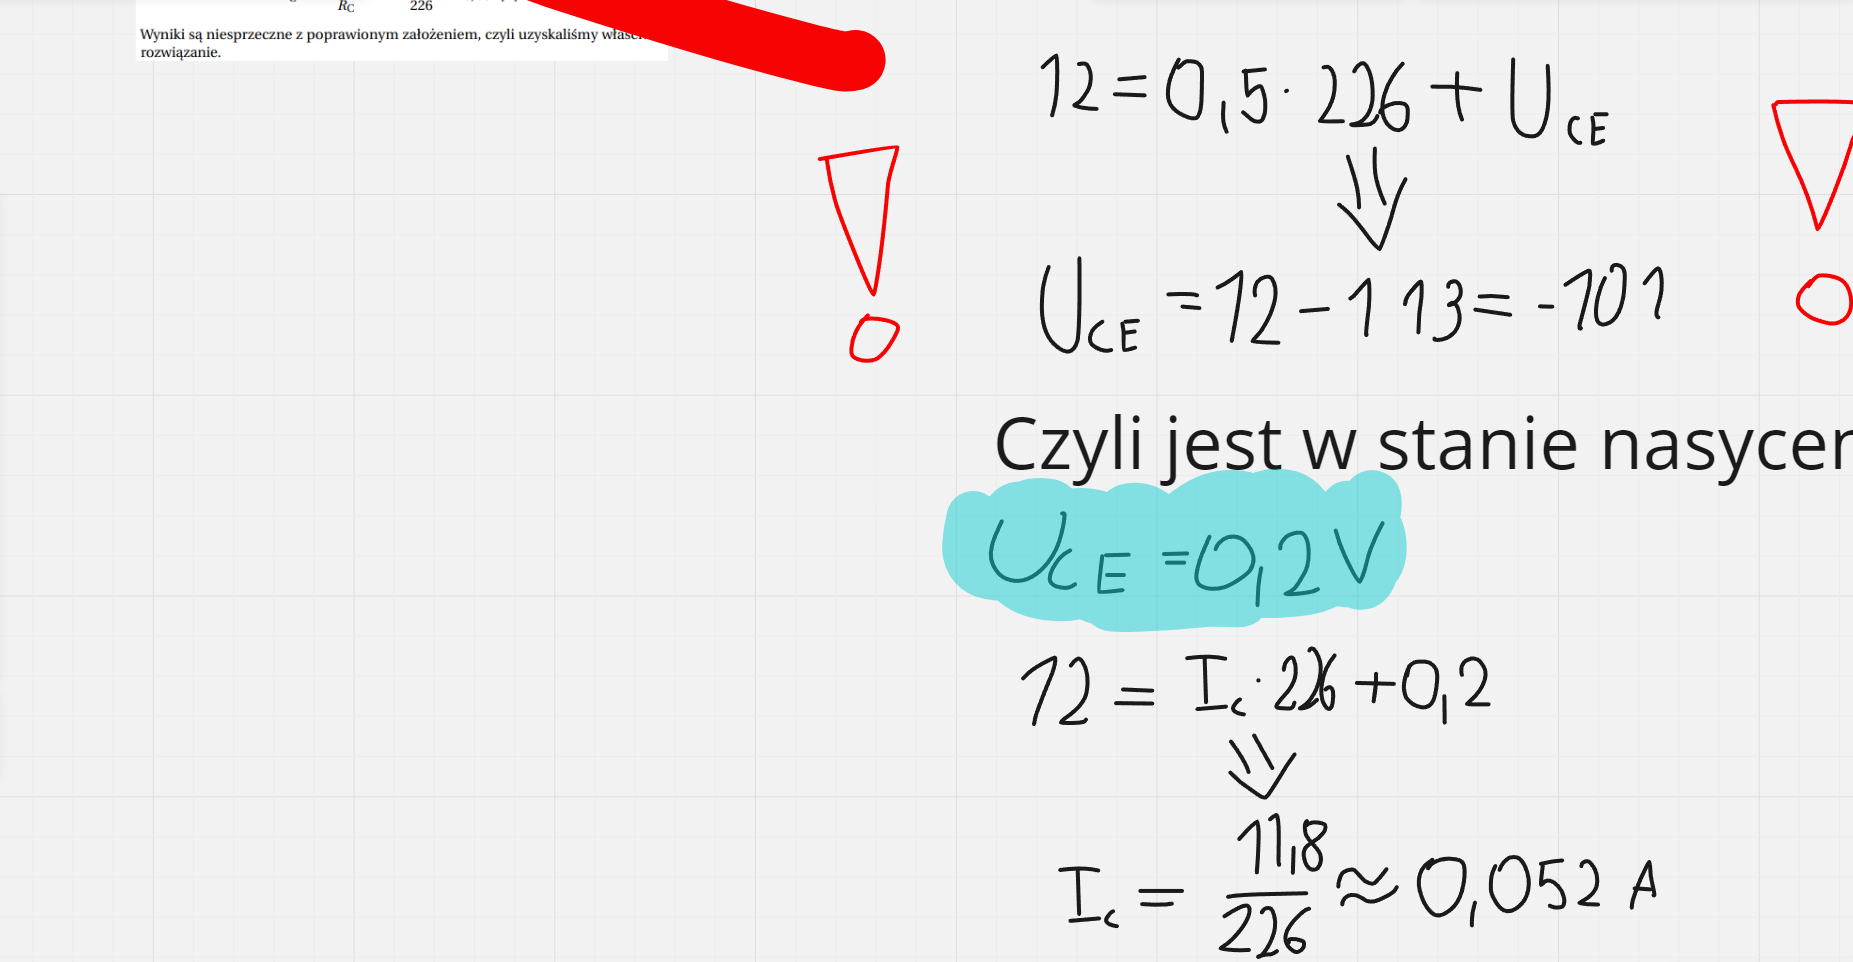 R_C 226
Wyniki są niesprzeczne z poprawionym założeniem, czyli uzyskaliśmy
rozwiązanie.
12 = 0,5 · 226 + U_CE
⇓
U_CE = 12 - 113 = -101
Czyli jest w stanie
U_CE = 0,2 V
12 = I_c · 226 + 0,2
⇓
I_c = 11,8 / 226 ≈ 0,052 A